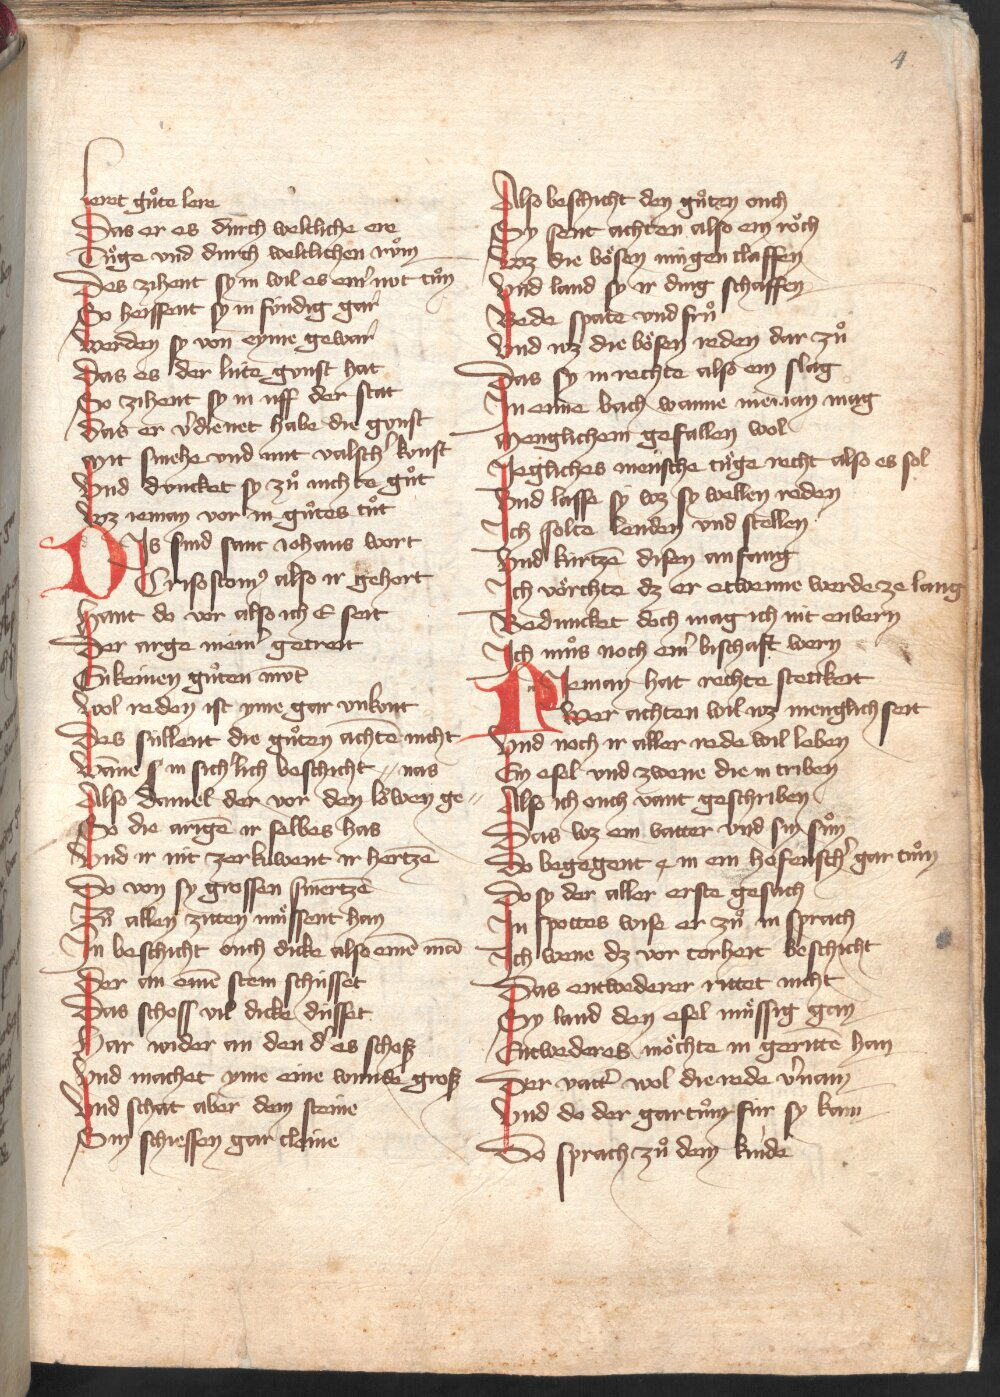 4
Leret gůte lere
Das er es durch weltliche ere
Tůge vnd durch weltlichen rům
Des zihent sy in wil es em̄ not tůn
So heissent sy in sv́ndig gar
Werden sy von eyme gewar
Das es der lúte gvnst hat
So zihent sy in vff der stat
Das er v̓dienet habe die gvnst
Mit smehe vnd mit valsch̓ kvnst
Vnd dvncket sy zů nichte gůt
Wz ieman vor in gůtes tůt
DIs sind sant iohans wort
Crisostom⁹ also ir gehort
Hant do vor also ich E seit
Der arge niem̓ getreit
Enkeinen gůten mv̊t
Wol reden ist yme gar vnkvnt
Des súllent die gůten achtē nicht
Wāne s in sich̓lich beschicht // nas
Also daniel der vor den löwen ge //
So die argē ir selbes has
Vnd ir nit zerkúwent ir hertzē
Do von sy grossen smertzē
Zů allen ziten mússent han
In beschicht ouch dicke also einē mā
Der an einē stein schússet
Das schoss vil dicke dússet
Har wider an den d̓ es schoß
Vnd machet yme eine wunde groß
Vnd schat aber dem steine
Sin schiessen gar cleine
Also beschicht den gůtzen ouch
Sy sent achten also ein röch
Wz die bösen mugen claffen
Vnd land sy ir ding schaffen
Bede spate vnd frů
Vnd wz die bösen reden dar zů
Das sy in rechte also ein slag
In eine bach wanne nieman mag
Menglichem gefallen wol
Iegliches mensche túge recht also es sol
Vnd lasse sy wz sy wellen reden
Ich solte lenden vnd stellen
Vnd kúrtzē disen anfang
Ich vörchte dz er etwenne werde ze lang
Beduncket doch mag ich nit enbern
Ich můs noch ein̓ bischaft wern
NIeman hat rechte stetikeit
Wer achten wil wz menglich seit
Vnd noch ir aller rede wil leben
Ein esel vnd zwene die in triben
Also ich ouch vant geschriben
Das wz ein vatter vnd sin sůn
Do begegent in ein höfensch̓ gartůn
Do sy der aller erste gesach
In spottes wise er zů in sprach
Ich wene dz vor torheit beschicht
Das entwederer rittet nicht
Sy land den esel mússig gan
Entwederes möchte in gerittē han
Der vatt̓ wol die rede v̓nam
Vnd do der gartůn fúr sy kam
Do sprach zů dem kinde